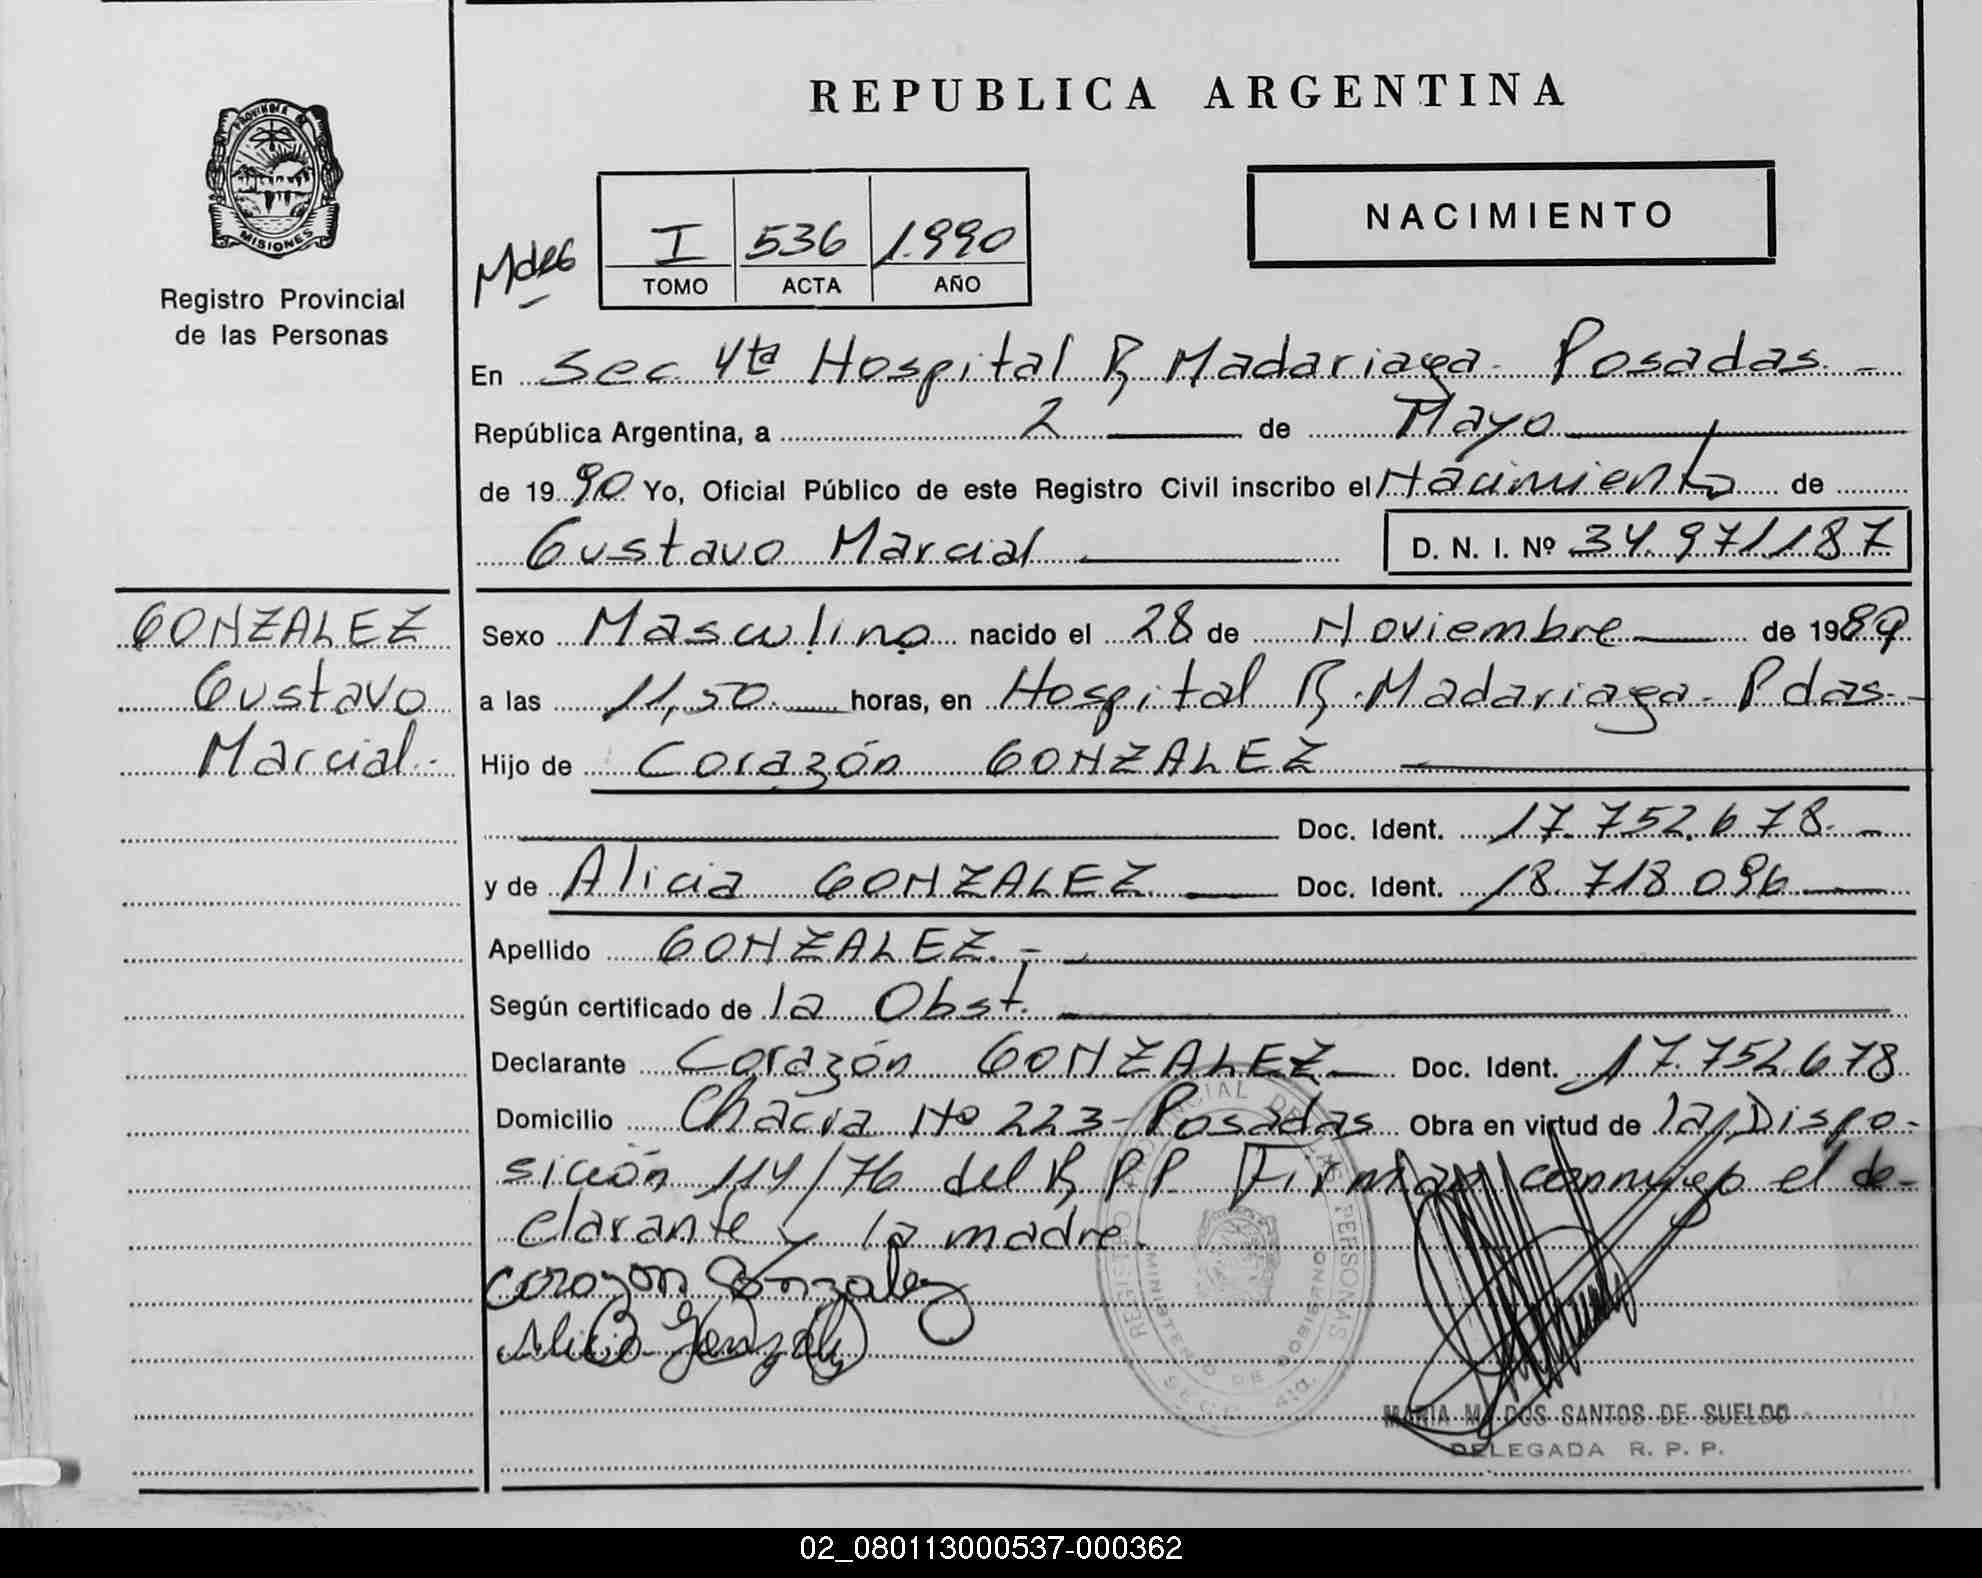 REPUBLICA ARGENTINA
PROVINCIA DE
MISIONES
Registro Provincial
de las Personas
NACIMIENTO
I 536 1.990
TOMO ACTA AÑO
En Sec 4ta Hospital R Madariaga - Posadas. -
República Argentina, a 2 de Mayo
de 1990 Yo, Oficial Público de este Registro Civil inscribo el Nacimiento de
Gustavo Marcial D. N. I. Nº 34.971187
GONZALEZ
Gustavo
Marcial.-
Sexo Masculino nacido el 28 de Noviembre de 1989
a las 11,50 horas, en Hospital R. Madariaga - Pdas. -
Hijo de Corazón GONZALEZ
Doc. Ident. 17.752.678. -
y de Alicia GONZALEZ Doc. Ident. 18.718.096
Apellido GONZALEZ. -
Según certificado de la Obst.
Declarante Corazón GONZALEZ Doc. Ident. 17.752.678
Domicilio Chacra Nº 223 - Posadas Obra en virtud de la Dispo-
sición 114/76 del R P P. Firman conmigo el de-
clarante y la madre.
Corazon Gonzalez
Alicia Gonzalez
REGISTRO PROVINCIAL DE LAS PERSONAS
MINISTERIO DE GOBIERNO
MARIA M. DOS SANTOS DE SUELDO
DELEGADA R. P. P.
02_080113000537-000362